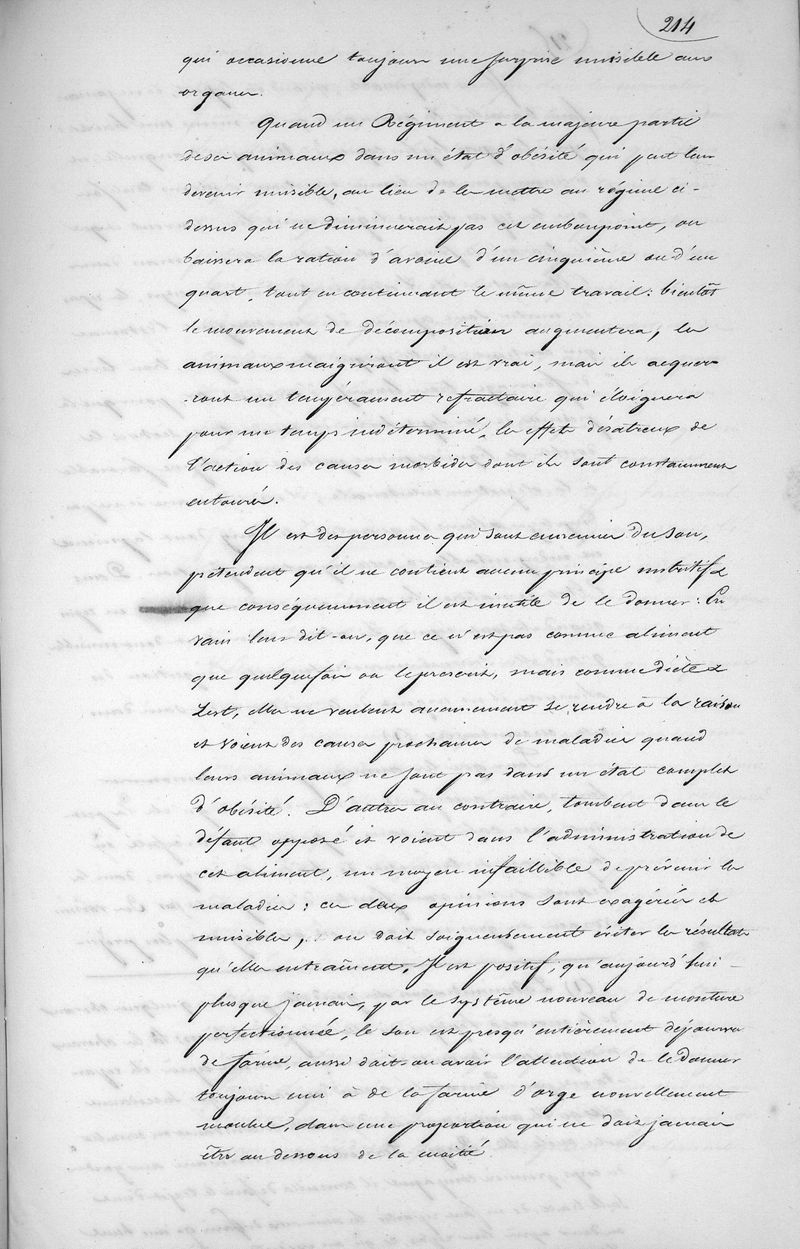 214
qui occasionne toujours une surprise nuisible aux
organes.
Quand un Régiment a la majeure partie
de ses animaux dans un état d'obésité qui peut leur
devenir nuisible, au lieu de les mettre au régime ci-
dessus qui ne diminuerait pas cet embonpoint, on
baissera la ration d'avoine d'un cinquième ou d'un
quart, tout en continuant le même travail : bientôt
le mouvement de décomposition augmentera, les
animaux maigriront il est vrai, mais ils acquer-
-ront un tempérament refractaire qui éloignera
pour un temps indéterminé, les effets désatreux de
l'action des causes morbides dont ils sont constamment
entourés.
Il est des personnes qui sont ennemies du son,
prétendent qu'il ne contient aucun principe nutritif &
que conséquemment il est inutile de le donner : En
vain leur dit-on, que ce n'est pas comme aliment
que quelquefois on le prescrit, mais comme diète &
Lest, elles ne veulent aucunement se rendre à la raison
et voient des causes prochaines de maladies quand
leurs animaux ne sont pas dans un état complet
d'obésité. D'autres au contraire, tombent dans le
défaut opposé et voient dans l'administration de
cet aliment, un moyen infaillible de prévenir les
maladies ; ces deux opinions sont exagérées et
nuisibles, on doit soigneusement éviter les résultats
qu'elles entraînent. Il est positif, qu'aujourd'hui
plus que jamais, par le système nouveau de mouture
perfectionnée, le son est presqu'entièrement dépourvu
de farine, aussi doit-on avoir l'attention de le donner
toujours uni à de la farine d'orge nouvellement
moulue, dans une proportion qui ne doit jamais
être au dessous de la moitié